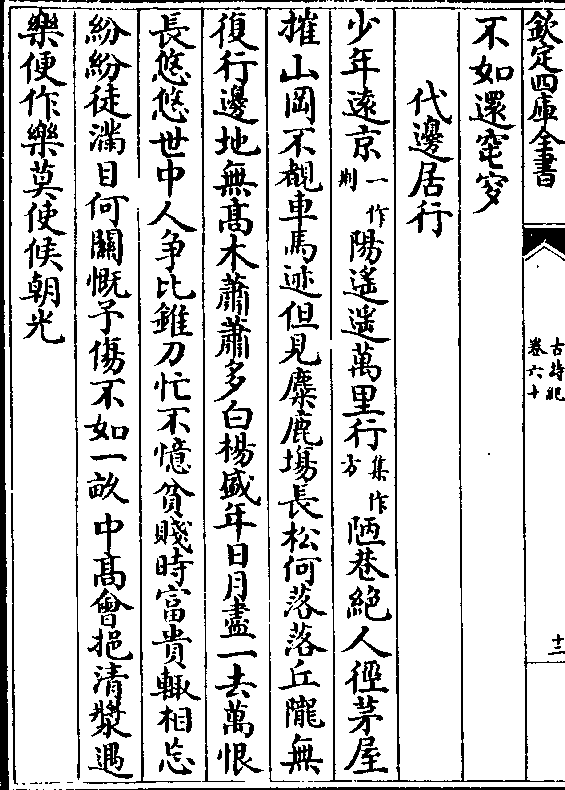 欽定四庫全書
古詩紀
卷六十
十三
不如還窀穸
代邊居行
少年遠京一作荆陽遙遙萬里行集作方陋巷絕人徑茅屋
摧山岡不覩車馬迹但見麋鹿塲長松何落落丘隴無
復行邊地無高木蕭蕭多白楊盛年日月盡一去萬恨
長悠悠世中人爭比錐刀忙不憶貧賤時富貴輒相忘
紛紛徒滿目何關慨予傷不如一畝中高會挹清漿遇
樂便作樂莫使候朝光